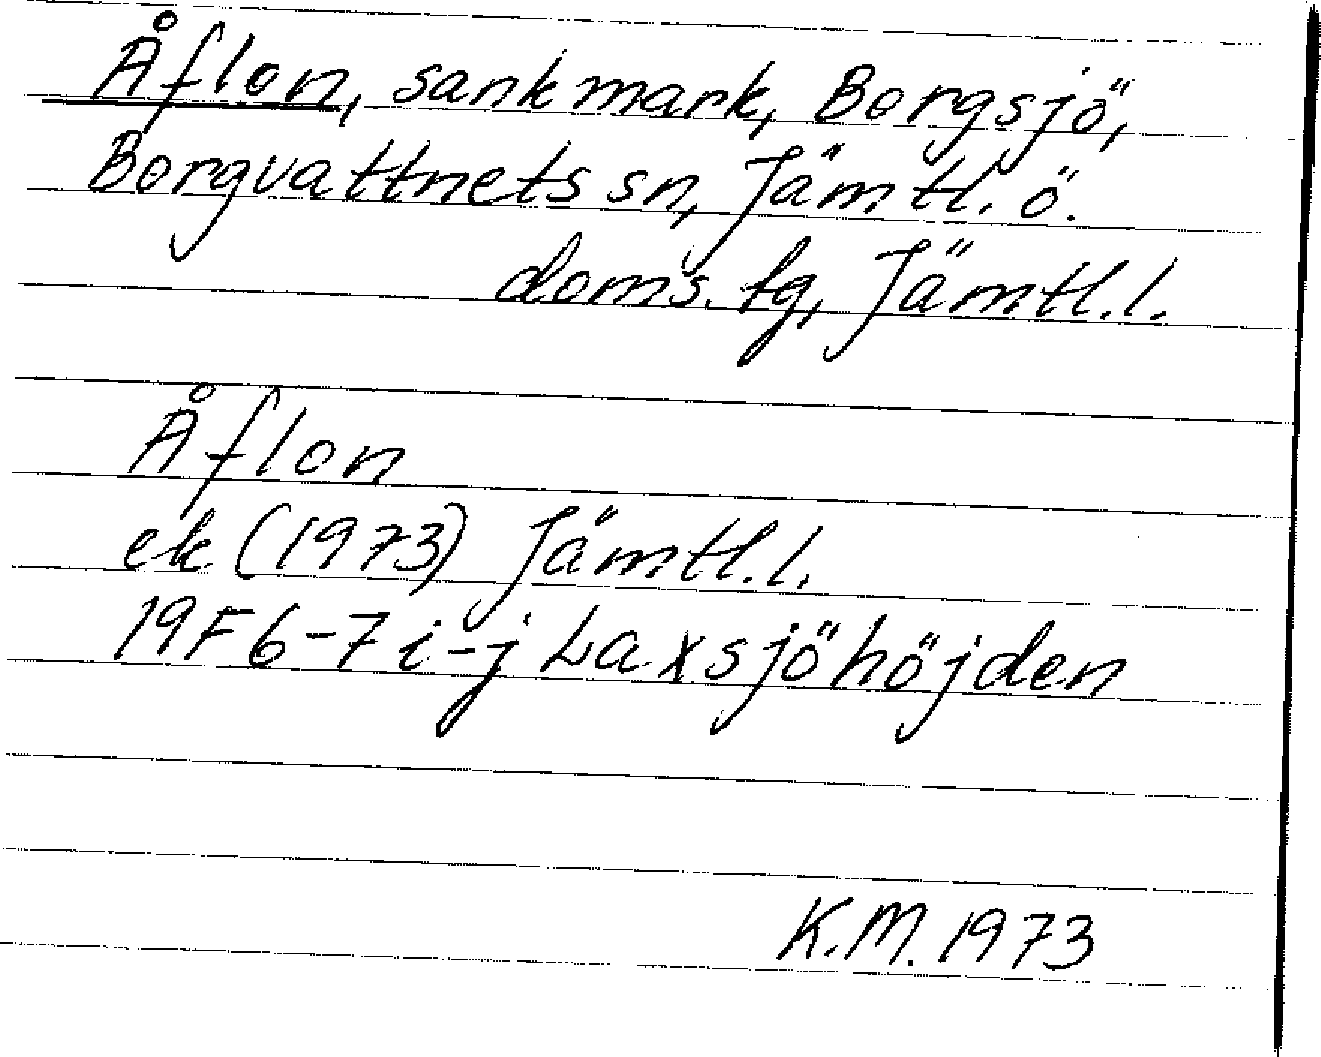 Åflon, sankmark, Borgsjö,
Borgvattnets sn, Jämtl. ö.
doms. tg, Jämtl. l.
Åflon
ek (1973) Jämtl. l.
19F 6-7 i-j Laxsjöhöjden
K.M. 1973